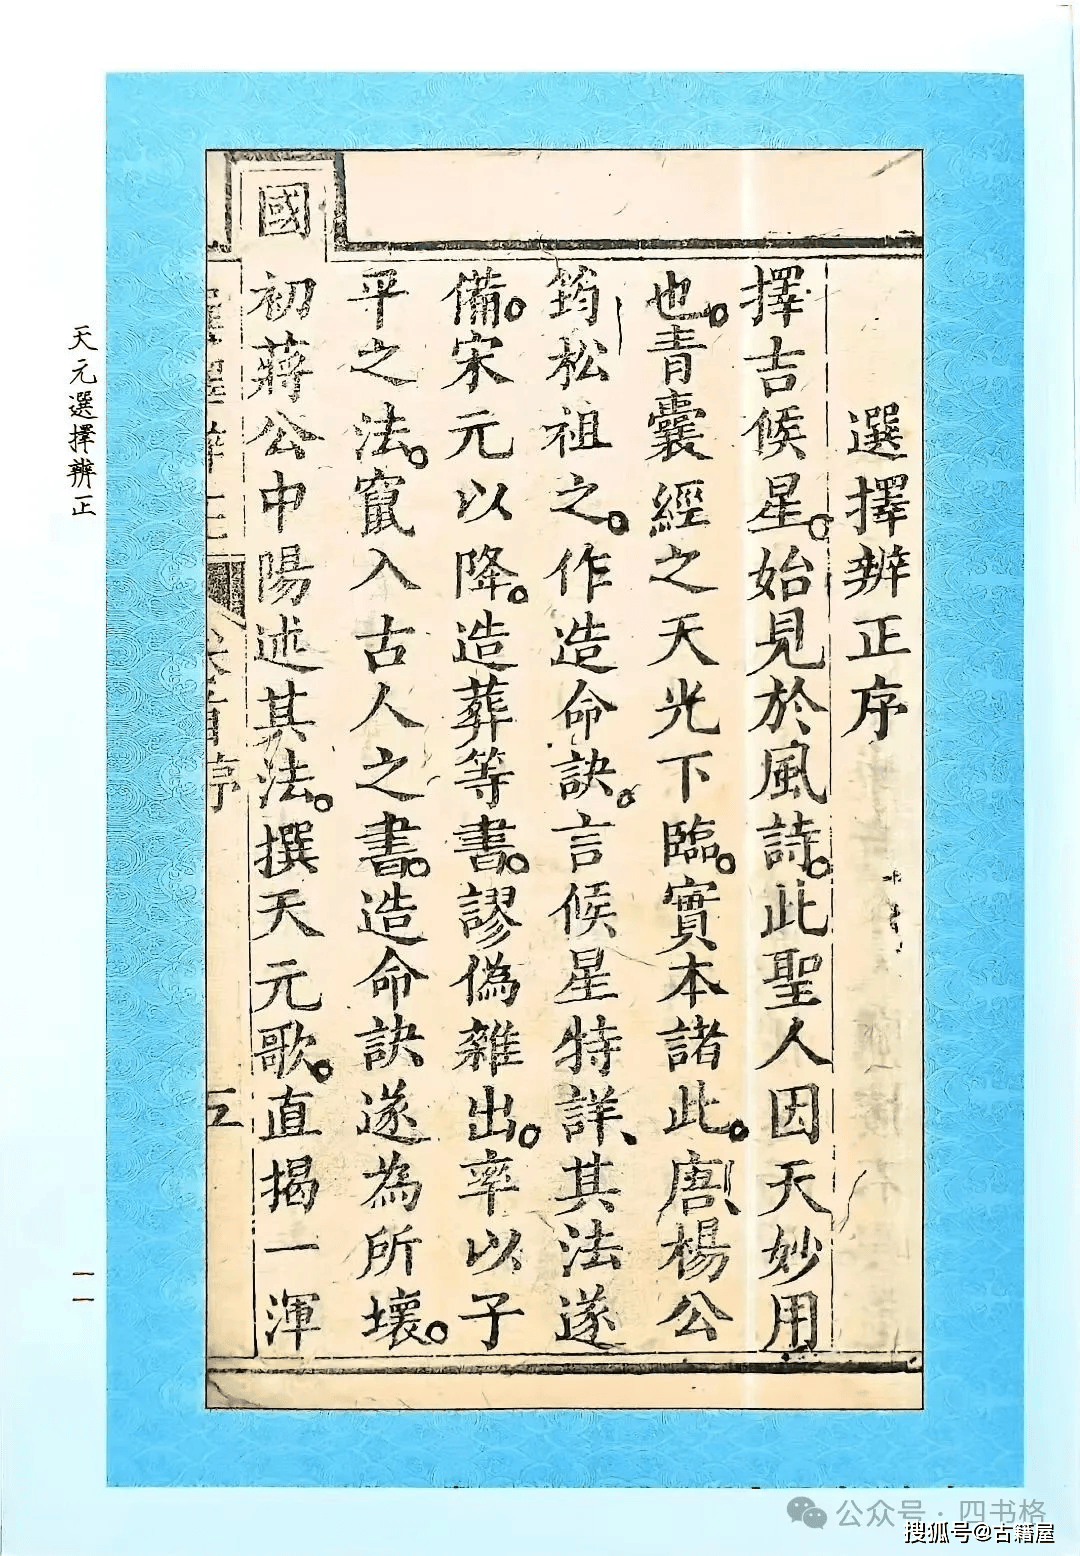 選擇辨正序
擇吉候星。始見於風詩。此聖人因天妙用
也。青囊經之天光下臨。實本諸此。唐楊公
筠松祖之。作造命訣。言候星特詳、其法遂
備。宋元以降。造葬等書。謬偽雜出。率以子
平之法。竄入古人之書。造命訣遂為所壞。
國初蔣公中陽述其法。撰天元歌。直揭一渾
選擇辨正 卷首序 五
天元選擇辨正
一一
公众号 · 四书格
搜狐号@古籍屋